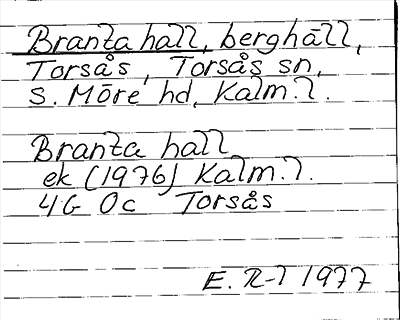 Branta hall, berghäll,
Torsås, Torsås sn,
S. Möre hd, Kalm.l.
Branta hall
ek (1976) Kalm.l.
4G Oc Torsås
E. R-l 1977